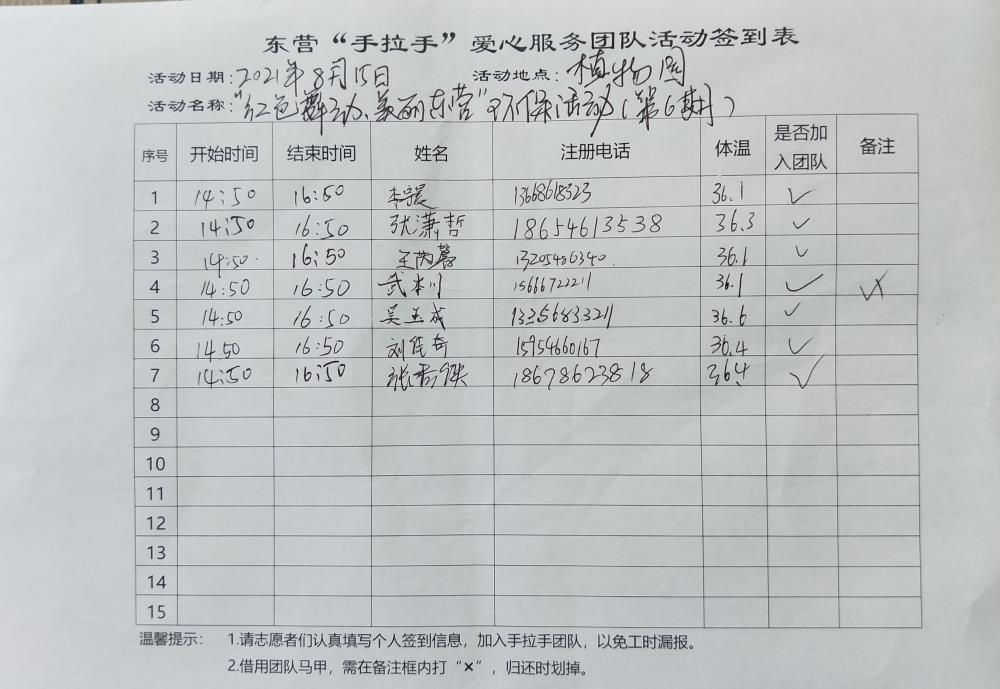 东营“手拉手”爱心服务团队活动签到表
活动日期:2021年8月15日 活动地点:植物园
活动名称:“红色舞动、美丽东营”环保活动(第6期)
序号 开始时间 结束时间 姓名 注册电话 体温 是否加入团队 备注
1 14:50 16:50 李宸 13668618323 36.1 ✓
2 14:50 16:50 张潇哲 18654613538 36.3 ✓
3 14:50 16:50 王芮馨 13205486340 36.1 ✓
4 14:50 16:50 武本川 15666722211 36.1 ✓ ✓×
5 14:50 16:50 吴玉成 13356833211 36.6 ✓
6 14.50 16:50 刘佳奇 15954660167 36.4 ✓
7 14:50 16:50 张 18678623818 36.4 ✓
8
9
10
11
12
13
14
15
温馨提示: 1.请志愿者们认真填写个人签到信息，加入手拉手团队，以免工时漏报。
2.借用团队马甲，需在备注框内打“×”，归还时划掉。